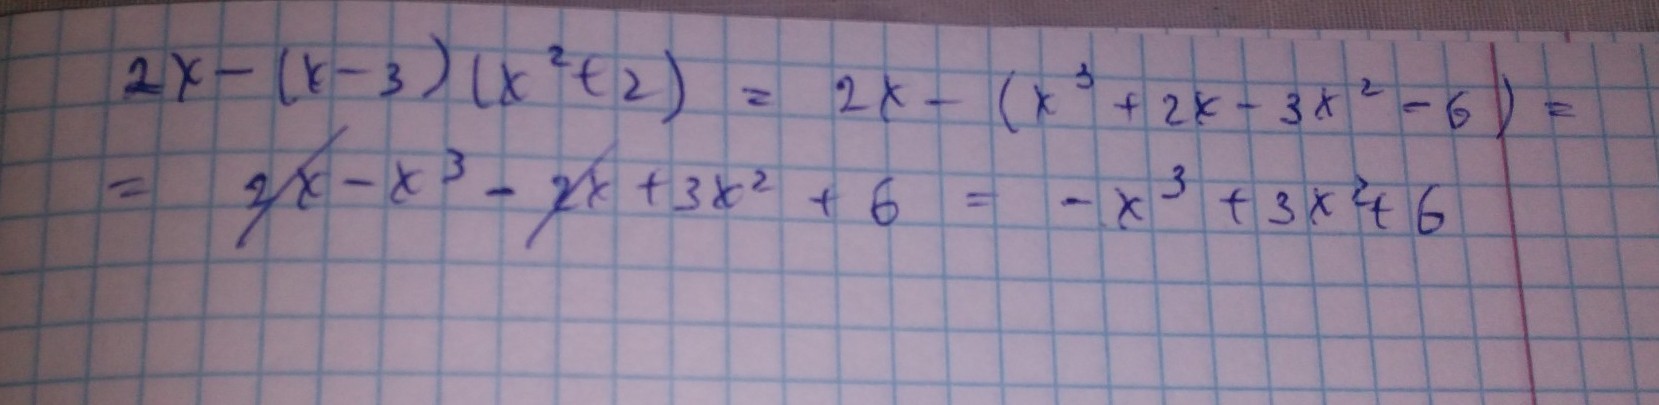 2x - (x - 3)(x² + 2) = 2x - (x³ + 2x - 3x² - 6) =
= 2x - x³ - 2x + 3x² + 6 = -x³ + 3x² + 6